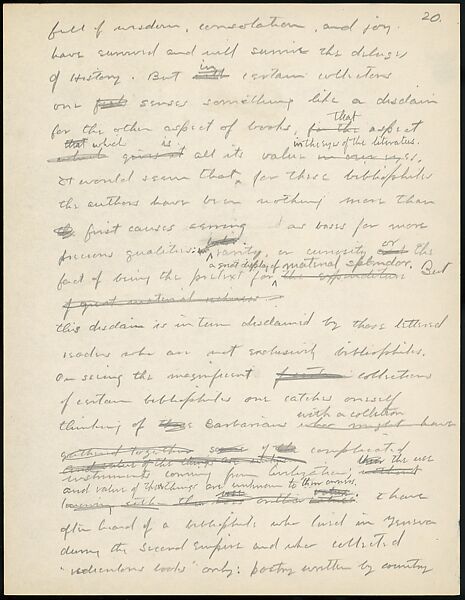 20.
full of wisdom, consolation, and joy.
have survived and will survive the deluges
of History. But in certain collectors
one feels senses something like a disdain
for the other aspect of books, for the that aspect
that which is in the eyes of the literates.
which gives it all its value in our eyes.
It would seem that, for these bibliophiles
the authors have been nothing more than
first causes serving as bases for more
precious qualities: rarity, or curiosity or the
a great display of material splendor. But
fact of being the pretext for the expenditure
of great material richness
this disdain is in turn disdained by those lettered
readers who are not exclusively bibliophiles.
On seeing the magnificent collections
of certain bibliophiles one catches oneself
with a collection
thinking of Barbarians who might have
gathered together some of the complicated
instruments coming from civilization, the use
and value of the things are unknown to their owners.
I have
often heard of a bibliophile who lived in Geneva
during the Second Empire and who collected
"ridiculous books" only: poetry written by country